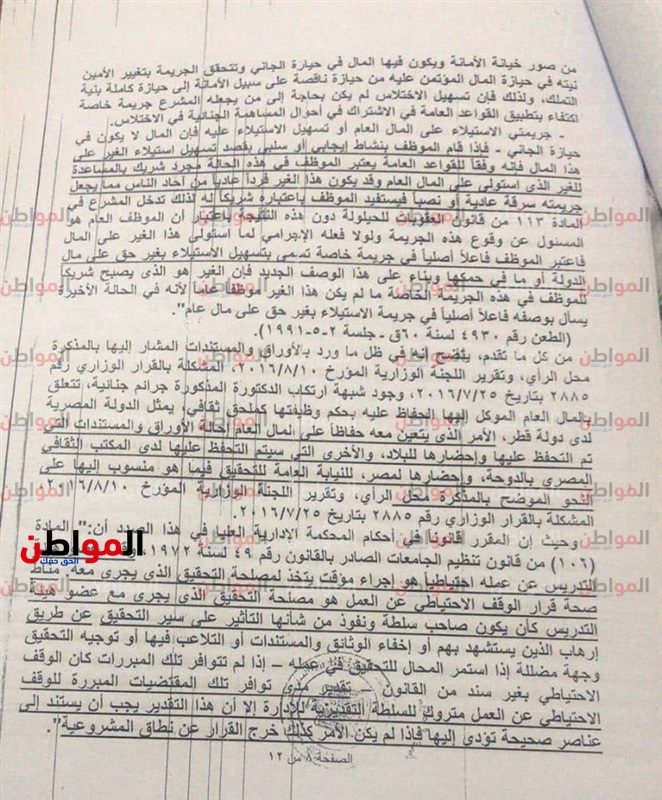 من صور خيانة الأمانة ويكون فيها المال في حيازة الجاني وتتحقق الجريمة بتغيير الأمين
نيته في حيازة المال المؤتمن عليه من حيازة ناقصة على سبيل الأمانة إلى حيازة كاملة بنية
التملك، ولذلك فإن تسهيل الاختلاس لم يكن بحاجة إلى من يجعله المشرع جريمة خاصة
اكتفاء بتطبيق القواعد العامة في الاشتراك في أحوال المساهمة الجنائية في الاختلاس.
- جريمتي الاستيلاء على المال العام أو تسهيل الاستيلاء عليه فإن المال لا يكون في
حيازة الجاني - فإذا قام الموظف بنشاط إيجابي أو سلبي بقصد تسهيل استيلاء الغير على
هذا المال فإنه وفقاً للقواعد العامة يعتبر الموظف في هذه الحالة مجرد شريك بالمساعدة
للغير الذى استولى على المال العام وقد يكون هذا الغير فرداً عادياً من آحاد الناس مما يجعل
جريمته سرقة عادية أو نصباً فيستفيد الموظف باعتباره شريكاً له لذلك تدخل المشرع في
المادة ١١٣ من قانون العقوبات للحيلولة دون هذه النتيجة باعتبار أن الموظف العام هو
المسئول عن وقوع هذه الجريمة ولولا فعله الإجرامي لما استولى هذا الغير على المال
فاعتبر الموظف فاعلاً أصلياً في جريمة خاصة تسمى بتسهيل الاستيلاء بغير حق على مال
الدولة أو ما في حكمها وبناء على هذا الوصف الجديد فإن الغير هو الذى يصبح شريكاً
للموظف في هذه الجريمة الخاصة ما لم يكن هذا الغير موظفاً عاماً لأنه في الحالة الأخيرة
يسأل بوصفه فاعلاً أصلياً في جريمة الاستيلاء بغير حق على مال عام".
(الطعن رقم ٤٩٣٠ لسنة ٦٠ق - جلسة ٢-٥-١٩٩١).
من كل ما تقدم، يتضح أنه في ظل ما ورد بالأوراق والمستندات المشار إليها بالمذكرة
محل الرأي، وتقرير اللجنة الوزارية المؤرخ ٢٠١٦/٨/١٠، المشكلة بالقرار الوزاري رقم
٢٨٨٥ بتاريخ ٢٠١٦/٧/٢٥، وجود شبهة ارتكاب الدكتورة المذكورة جرائم جنائية، تتعلق
بالمال العام الموكل إليها الحفاظ عليه بحكم وظيفتها كملحق ثقافي، يمثل الدولة المصرية
لدى دولة قطر، الأمر الذى يتعين معه حفاظاً على المال العام إحالة الأوراق والمستندات التي
تم التحفظ عليها وإحضارها للبلاد، والأخرى التي سيتم التحفظ عليها لدى المكتب الثقافي
المصري بالدوحة، وإحضارها لمصر، للنيابة العامة للتحقيق فيما هو منسوب إليها على
النحو الموضح بالمذكرة محل الرأي، وتقرير اللجنة الوزارية المؤرخ ٢٠١٦/٨/١٠
المشكلة بالقرار الوزاري رقم ٢٨٨٥ بتاريخ ٢٠١٦/٧/٢٥.
وحيث إن المقرر قانوناً في أحكام المحكمة الإدارية العليا في هذا الصدد أن:" المادة
(١٠٦) من قانون تنظيم الجامعات الصادر بالقانون رقم ٤٩ لسنة ١٩٧٢
التدريس عن عمله احتياطياً هو إجراء مؤقت يتخذ لمصلحة التحقيق الذى يجرى معه، مناط
صحة قرار الوقف الاحتياطي عن العمل هو مصلحة التحقيق الذى يجرى مع عضو هيئة
التدريس كأن يكون صاحب سلطة ونفوذ من شأنها التأثير على سير التحقيق عن طريق
إرهاب الذين يستشهد بهم أو إخفاء الوثائق والمستندات أو التلاعب فيها أو توجيه التحقيق
وجهة مضللة إذا استمر المحال للتحقيق في عمله - إذا لم تتوافر تلك المبررات كان الوقف
الاحتياطي بغير سند من القانون - تقدير مدى توافر تلك المقتضيات المبررة للوقف
الاحتياطي عن العمل متروك للسلطة التقديرية للإدارة إلا أن هذا التقدير يجب أن يستند إلى
عناصر صحيحة تؤدى إليها فإذا لم يكن الأمر كذلك خرج القرار عن نطاق المشروعية".
الصفحة ٨ من ١٢
المواطن
الحق حقك